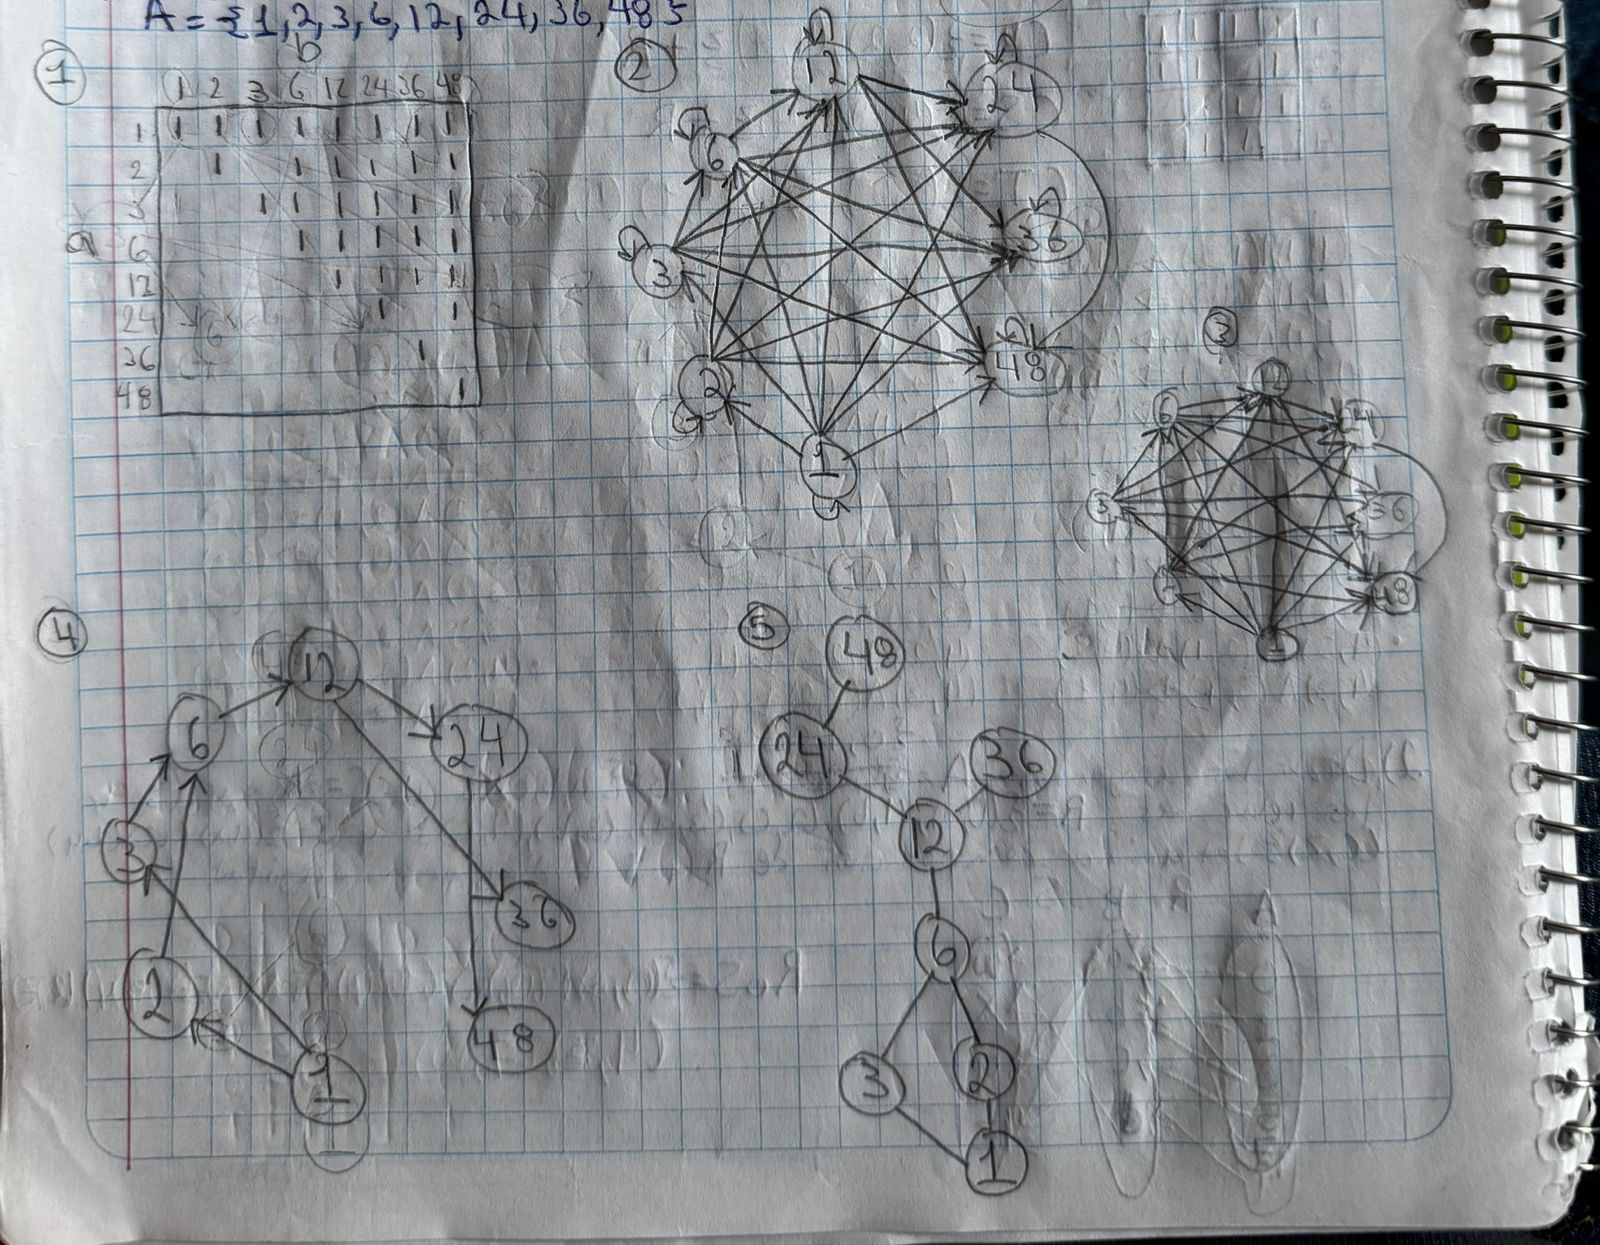 A = {1,2,3,6,12,24,36,48}
① b
1 2 3 6 12 24 36 48
1 1 1 1 1 1 1 1 1
2 1 1 1 1 1 1
3 1 1 1 1 1 1
a 6 1 1 1 1 1
12 1 1 1 1
24 1 1
36 1
48 1
②
12
24
6
36
3
48
2
1
③
12
6
24
3
36
48
1
④
12
6
24
3
36
2
48
1
⑤
48
24
36
12
6
3
2
1